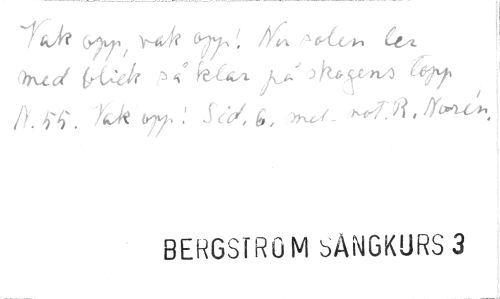 Vak opp, vak opp! Nu solen ler
med blick så klar på skogens topp
N. 55. Vak opp! Sid. 6. mel. not. R. Norén.
BERGSTRÖM SÅNGKURS 3